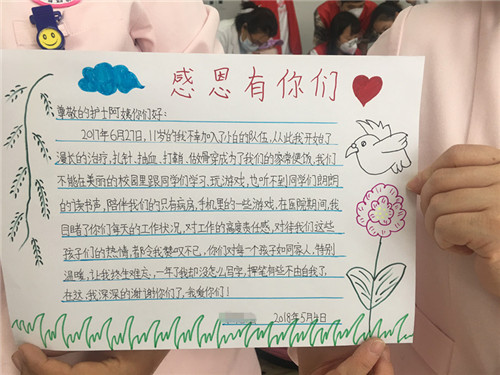 感恩有你们
尊敬的护士阿姨你们好：
2017年6月27日，11岁的我不幸加入了小白的队伍，从此我开始了
漫长的治疗，扎针、抽血、打鞘、做骨穿成为了我们的家常便饭，我们
不能在美丽的校园里跟同学们学习、玩游戏，也听不到同学们朗朗
的读书声，陪伴我们的只有病房，手机里的一些游戏，在医院期间，我
目睹了你们每天的工作状况，对工作的高度责任感，对待我们这些
孩子们的热情，都令我赞叹不已，你们对每个孩子如同家人，特别
温暖，让我终生难忘，一年了我却没怎么写字，握笔有些不由自我了，
在这，我深深的谢谢你们了，我爱你们！
2018年5月4日